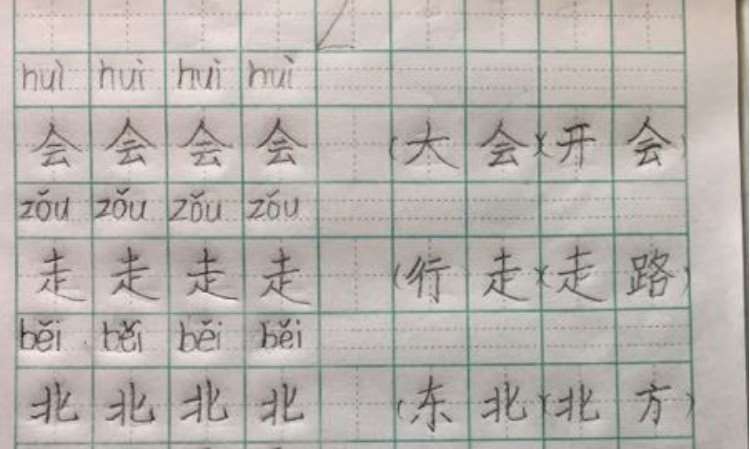 huì huì huì huì
会 会 会 会 (大 会)(开 会)
zǒu zǒu zǒu zǒu
走 走 走 走 (行 走)(走 路)
běi běi běi běi
北 北 北 北 (东 北)(北 方)